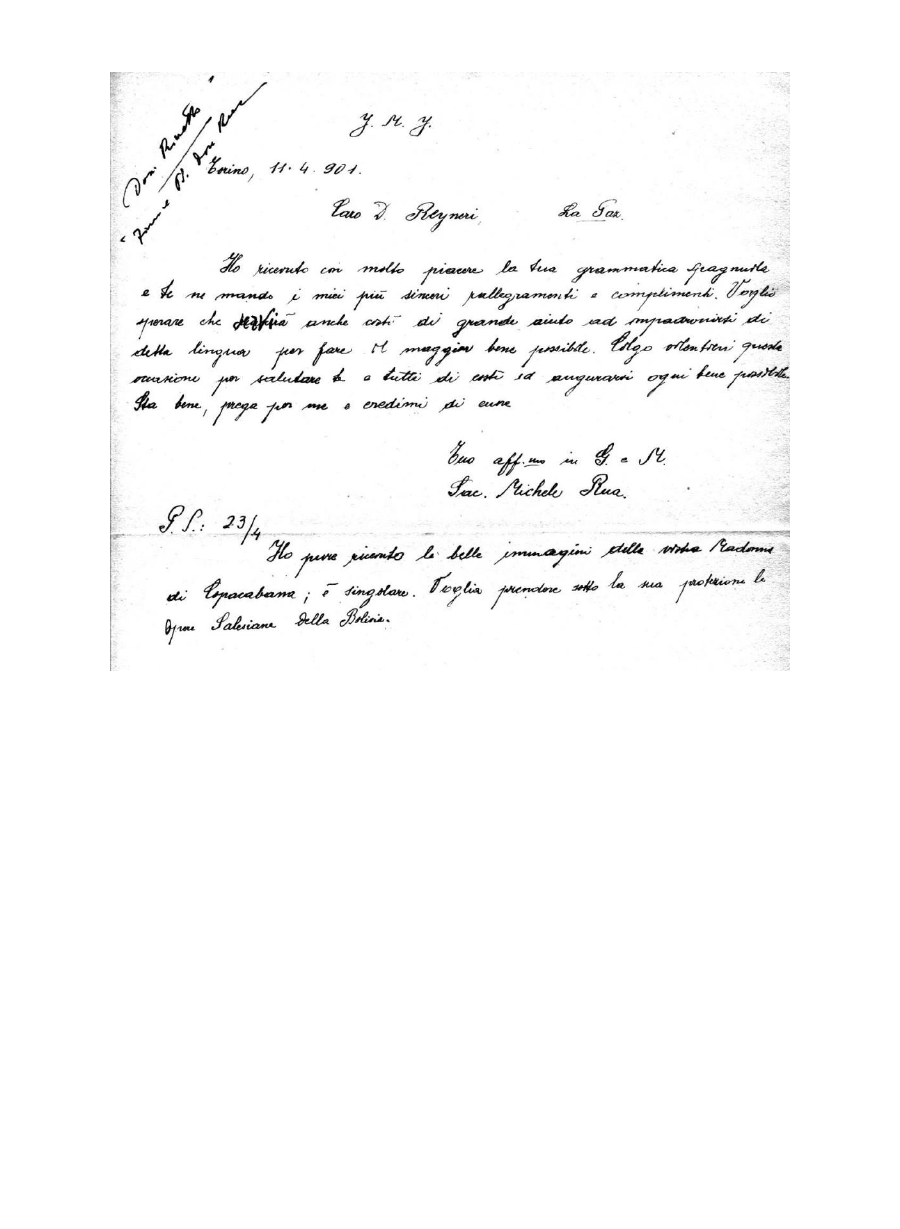 J. M. J.
Torino, 11. 4. 901.
Caro D. Reyneri, La Paz.
Ho ricevuto con molto piacere la tua grammatica spagnuola
e te ne mando i miei più sinceri rallegramenti e complimenti. Voglio
sperare che servirà anche costì di grande aiuto ad impadronirsi di
detta lingua per fare il maggior bene possibile. Colgo volentieri questa
occasione per salutare te e tutti di costì ed augurarvi ogni bene possibile.
Sta bene, prega per me e credimi di cuore
Tuo aff.mo in G. e M.
Sac. Michele Rua.
P.S.: 23/4
Ho pure ricevuto le belle immagini della vostra Madonna
di Copacabana; è singolare. Voglia prendere sotto la sua protezione le
Opere Salesiane della Bolivia.